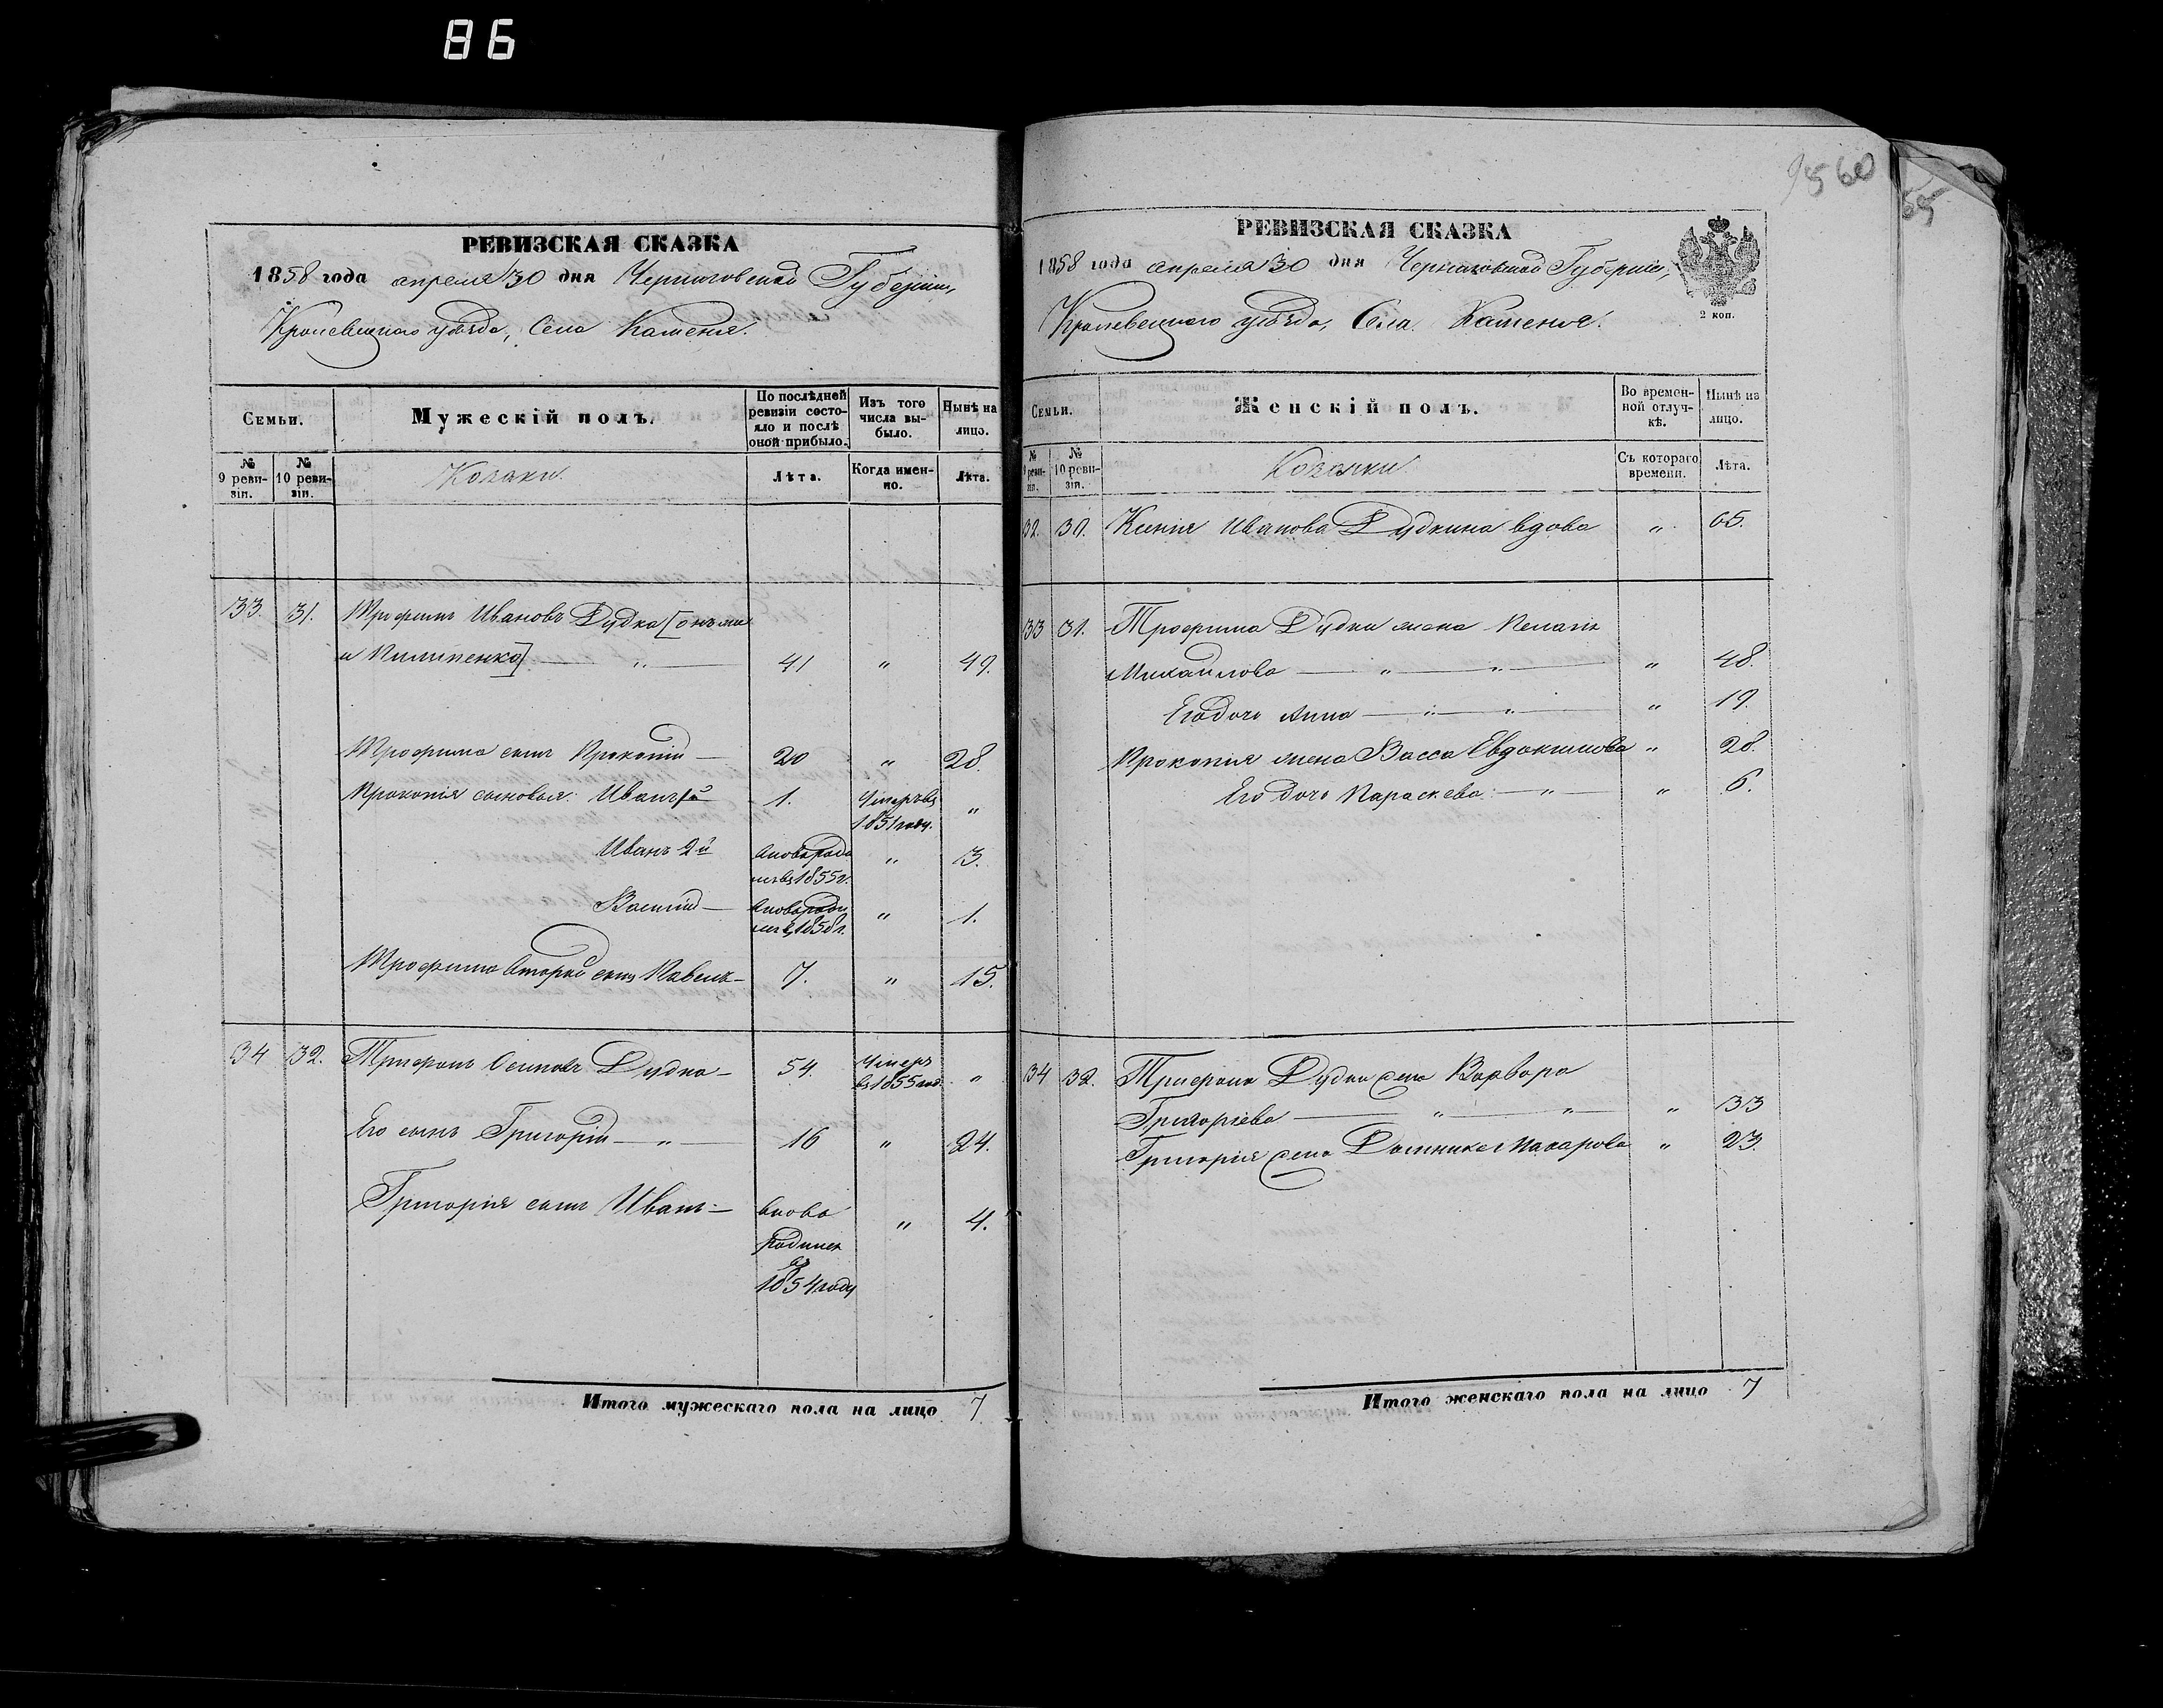 86
РЕВИЗСКАЯ СКАЗКА
1858 года апреля 30 дня Черниговской Губерніи,
Кролевецкаго уѣзда, Села Каменя.
Семьи.
Мужескій полъ.
По послѣдней ревизіи состояло и послѣ оной прибыло.
Изъ того числа выбыло.
Нынѣ на лицо.
№ 9 ревизіи.
№ 10 ревизіи.
Козаки.
Лѣта.
Когда именно.
Лѣта.
33. 31. Трофимъ Ивановъ Дудка [онъ же
и Пилипенко] — " — 41 " 49.
Трофима сынъ Прокопій — 20 " 28.
Прокопія сыновья: Иванъ 1й 1. Умеръ въ 1851 году. "
Иванъ 2й вновь родился въ 1855 г. " 3.
Василій — вновь родился въ 1858 г. " 1.
Трофима второй сынъ Павелъ — 7. " 15.
34 32. Трифонъ Осиповъ Дудка — 54. Умеръ въ 1855 год. "
Его сынъ Григорій — " — 16 " 24.
Григорія сынъ Иванъ — вновь родился въ 1854 году " 4.
Итого мужескаго пола на лицо 7
9560
65
РЕВИЗСКАЯ СКАЗКА
1858 года апреля 30 дня Черниговской Губерніи,
2 коп.
Кролевецкаго уѣзда, Села Каменя.
Семьи.
Женскій полъ.
Во временной отлучкѣ.
Нынѣ на лицо.
№ 9 ревизіи.
№ 10 ревизіи.
Козачки.
Съ котораго времени.
Лѣта.
32. 30. Ксенія Иванова Дудкина вдова " 65.
33 31. Трофима Дудки жена Пелагія
Михайлова — " — " — " 48.
Его дочь Анна — " — " — " 19.
Прокопія жена Васса Евдокимова " 28.
Его дочь Параскева — " — " 6.
34 32. Трифона Дудки жена Варвара
Григорьева — " — " — " 33
Григорія жена Домникия Макарова " 23.
Итого женскаго пола на лицо 7